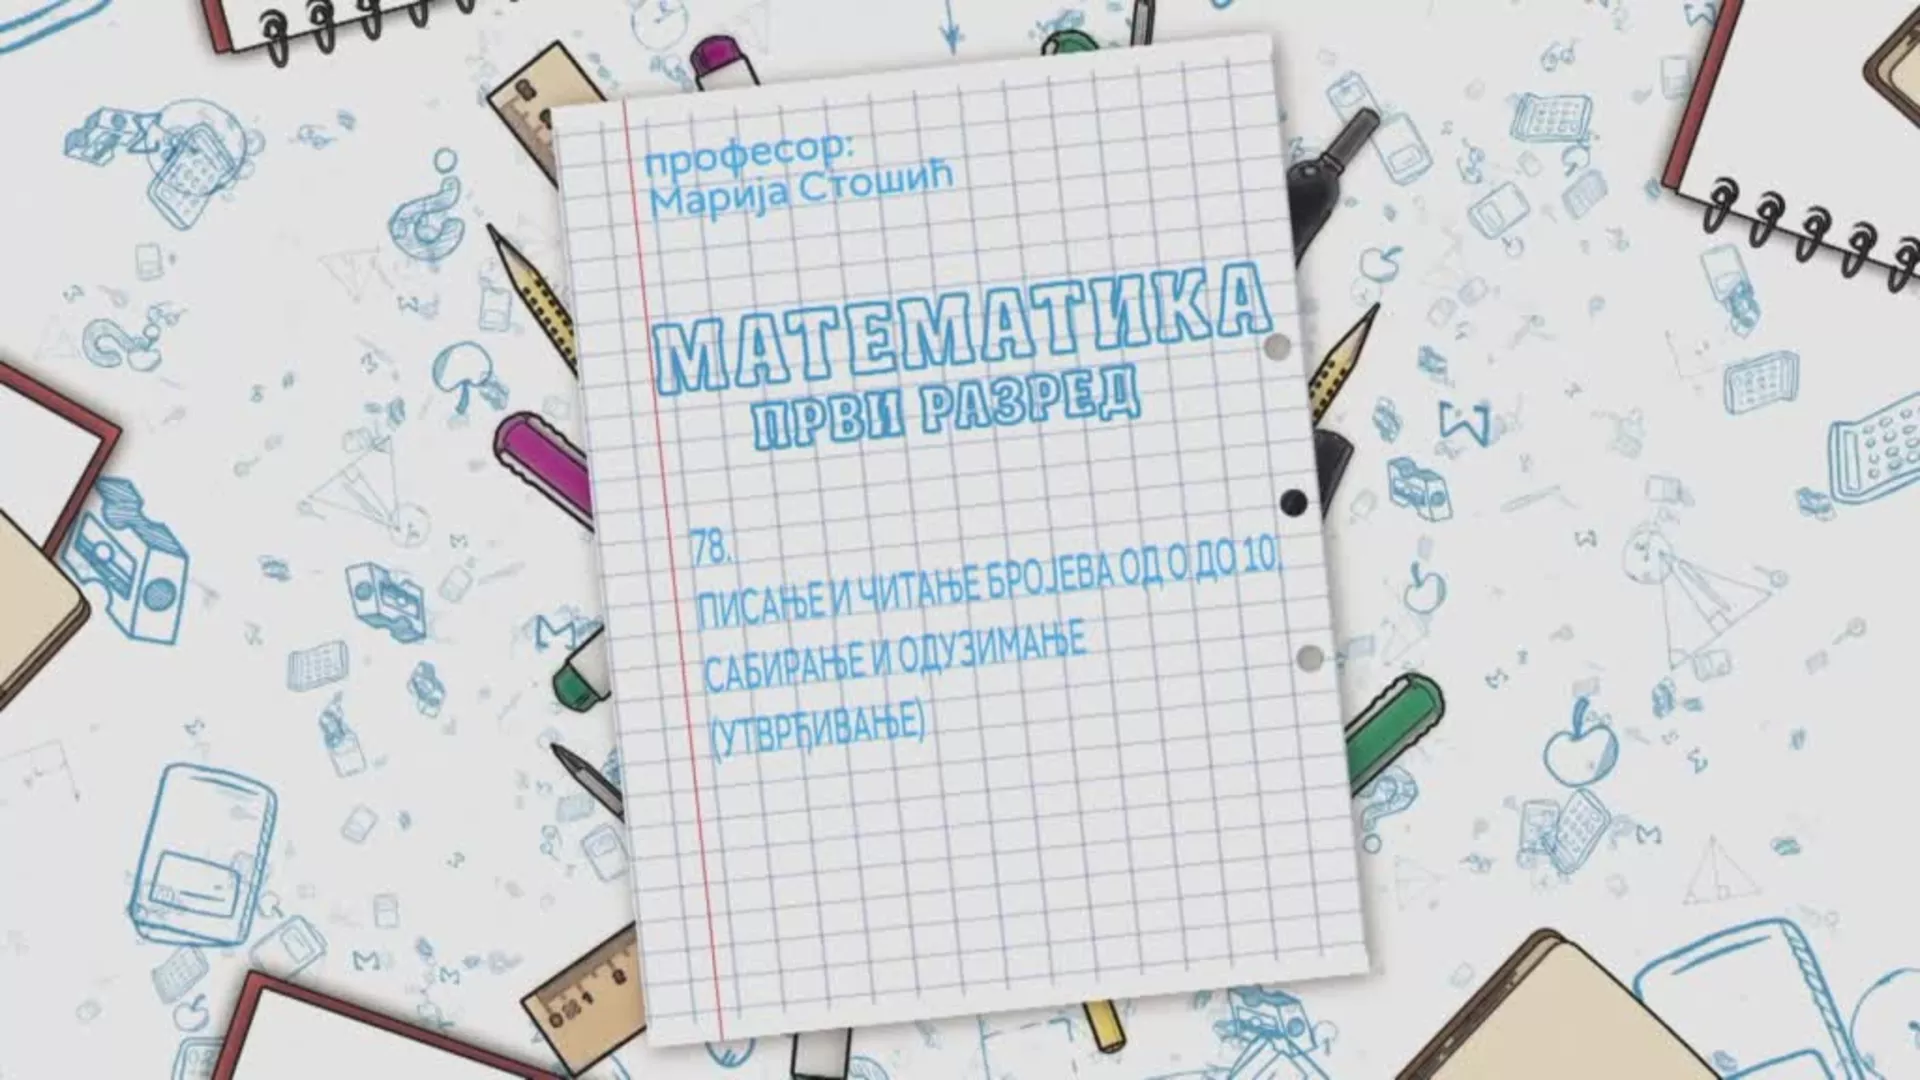 професор:
Марија Стошић
МАТЕМАТИКА
ПРВИ РАЗРЕД
78.
ПИСАЊЕ И ЧИТАЊЕ БРОЈЕВА ОД 0 ДО 10,
САБИРАЊЕ И ОДУЗИМАЊЕ
(УТВРЂИВАЊЕ)